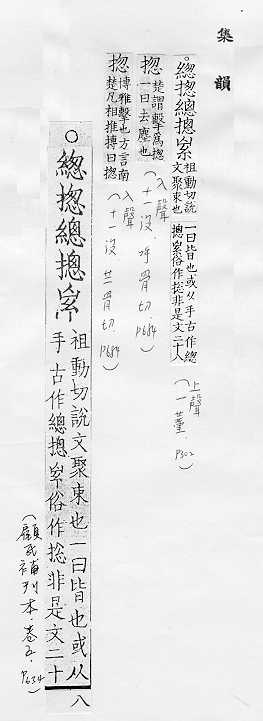 集韻
○緫揔總摠糉祖動切說文聚束也一曰皆也或从手古作總摠糉俗作捴非是文二十八
(上聲 一董.P302)
揔楚謂擊為揔一曰去塵也
(入聲 十一沒.呼骨切.P684)
揔博雅擊也方言南楚凡相推搏曰揔
(入聲 十一沒 苦骨切.P684)
○緫揔總摠
祖動切說文聚束也一曰皆也或从
手古作總摠
俗作捴非是文二十八
(顧氏補刊本.卷五.P634)